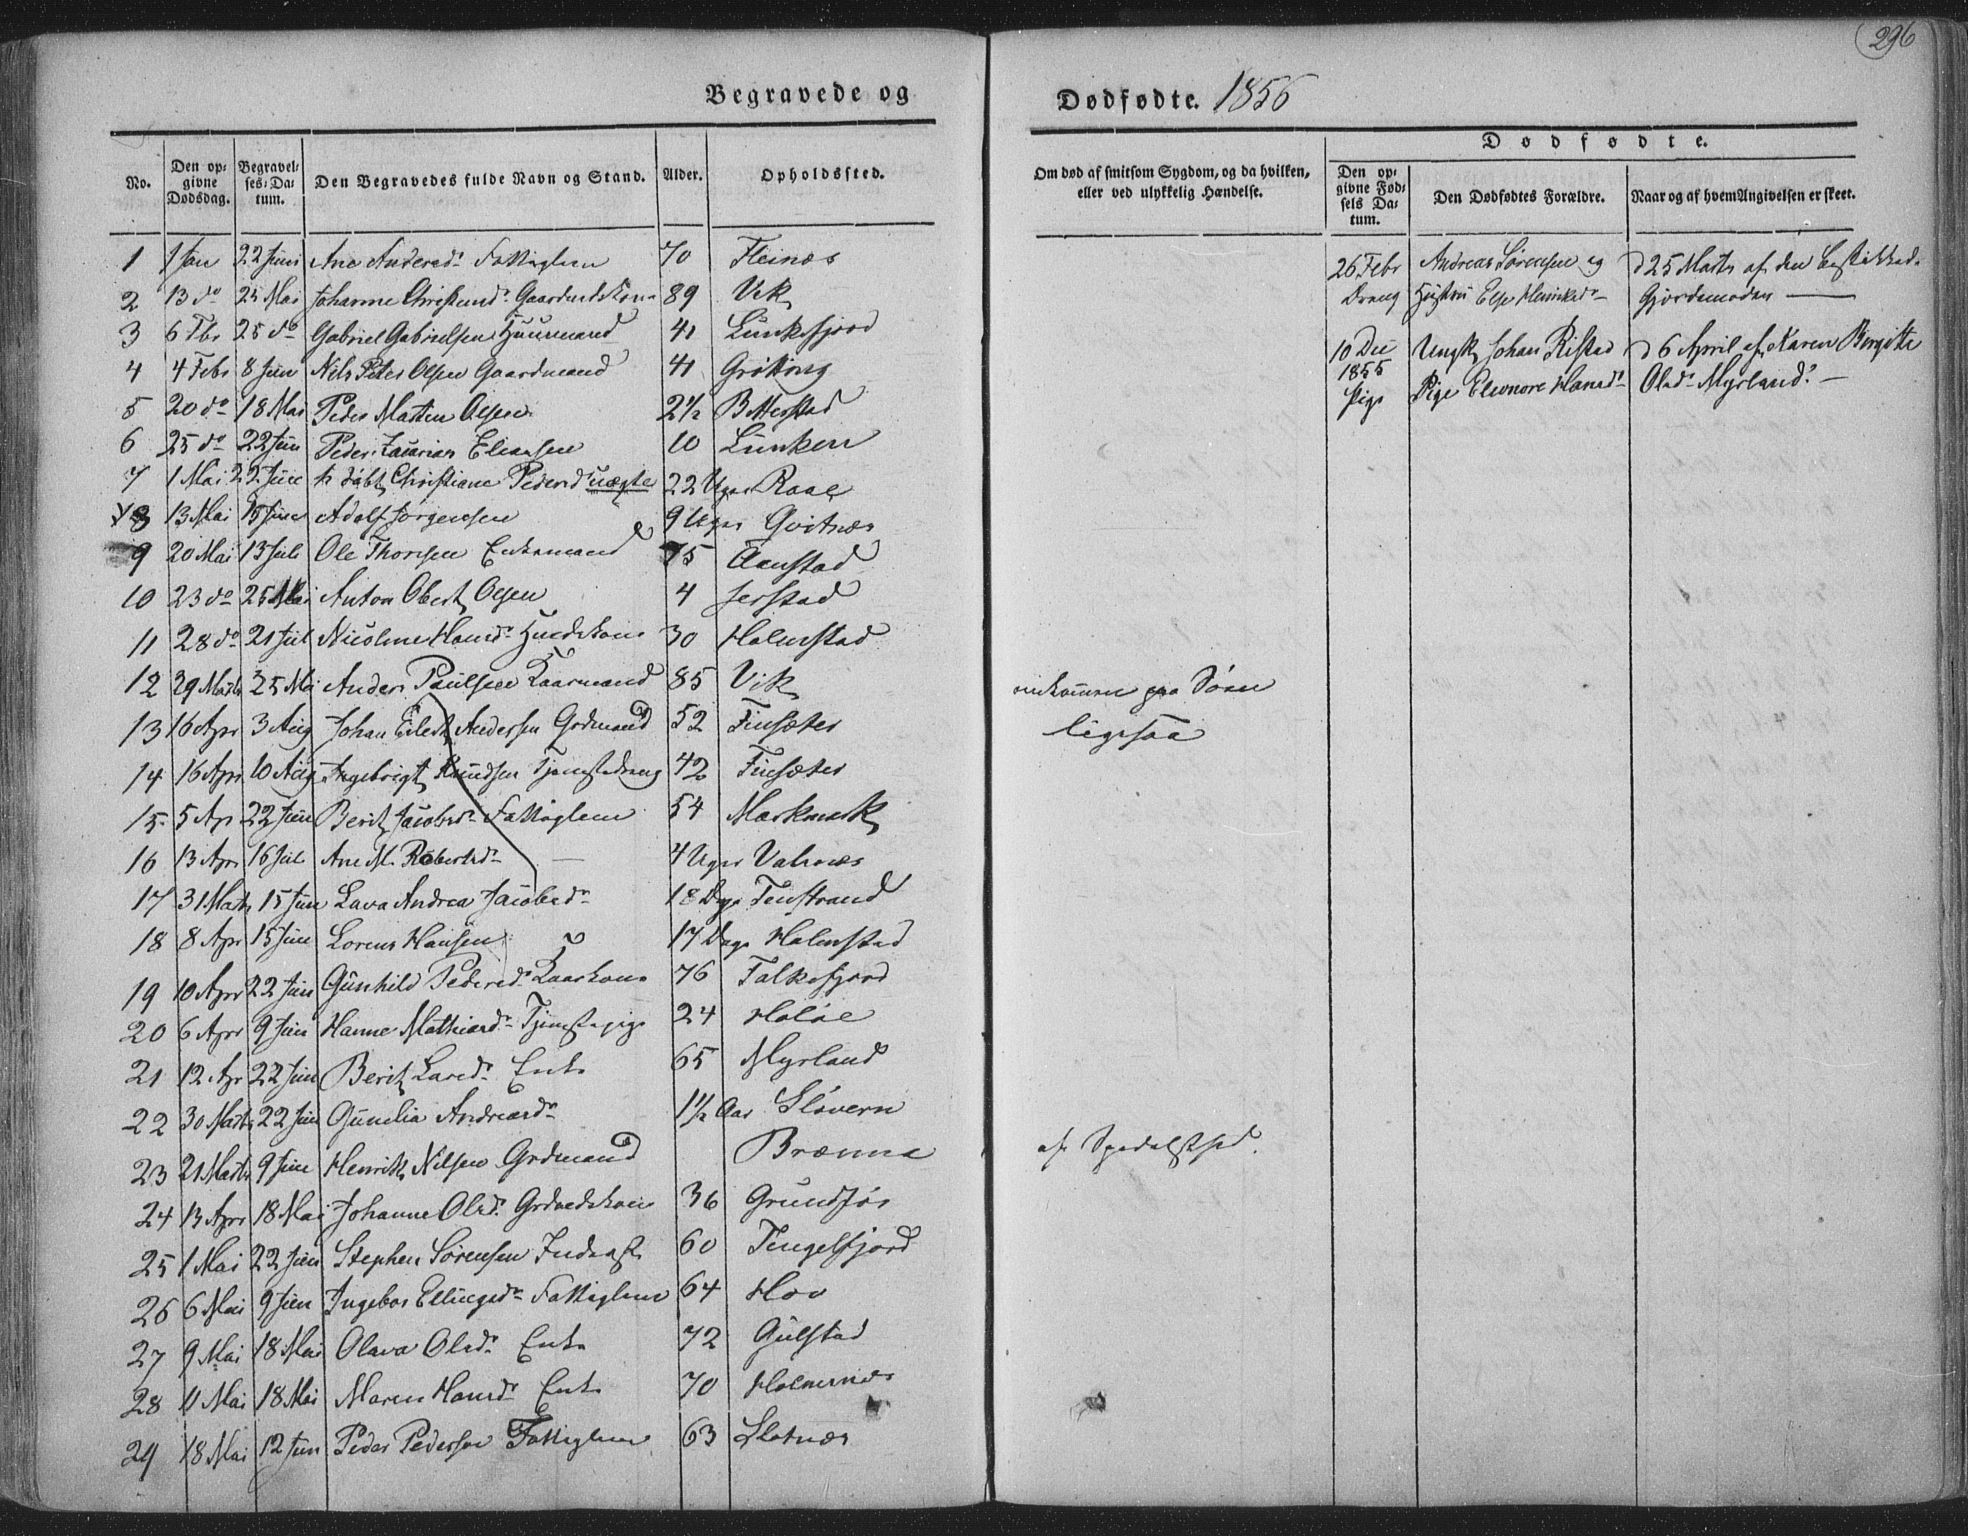 296
Begravede og
Dødfødte. 1856
No.
Den opgivne Dødsdag.
Begravelses-Datum.
Den Begravedes fulde Navn og Stand.
Alder.
Opholdssted.
Om død af smitsom Sygdom, og da hvilken, eller ved ulykkelig Hændelse.
Dødfødte.
Den opgivne Fødsels Datum.
Den Dødfødtes Forældre.
Naar og af hvem Angivelsen er skeet.
1 1 Jan 22 Juni Ane Andersd. Fattiglem 70 Fleines
2 13 do 25 Mai Johanne Gaardmdskone 89 Vik
3 6 Fbr 25 do Gabriel Gabrielsen Huusmand 41 Lunkefjord
4 4 Febr 8 Jun Nels Peter Olsen Gaardmand 41 Grötting
5 20 do 18 Mai Peder Martin Olsen 2 1/2 Bitterstad
6 25 do 22 Jun Peder Zacarias Eliassen 10 Lunken
7 1 Mai 22 Jun Christiane Pedersd uægte 22 Uger Raae
8 13 Mai 15 Jun Adolf Jørgensen 9 Uger Gvitnes
9 20 Mai 13 Jul Ole Thorsen Enkemand 75 Aanstad
10 23 do 25 Mai Anton Obert Olsen 4 Jerstad
11 28 do 21 Jul Nicoline Hansd. 30 Holmstad
12 29 Marts 25 Mai Anders Paulsen Kaarmand 85 Vik
omkommen paa Søen
13 16 Apr 3 Aug Johan Eilert Andersen Grdmand 52 Finsæter
ligesaa
14 16 Apr 10 Aug Ingebrigt Knudsen Tjenestedreng 42 Finsæter
15 5 Ap 22 Jun Berit Jacobsd. Fattiglem 54 Markmark
16 13 Apr 16 Jul Ane M. Robertsd. — 4 Uger Valnes
17 31 Marts 15 Jun Lava Andrea Jacobsd. 18 Dage Tenstrand
18 8 Apr 15 Jun Lorens Hansen 17 Dage Holmstad
19 10 Apr 22 Jun Gunhild Pedersd. Kaarkone 76 Falkefjord
20 6 Apr 9 Jun Hanne Mathiasd. Tjenestepige 24 Haløe
21 12 Apr 22 Jun Berit Larsd. Enke 65 Myrland
22 30 Marts 22 Jun Gunelia Andreasd. 1 1/2 Aar Sløvern
23 21 Marts 9 Jun Henrik Nilsen Grdmand Brænna
af Spedalskhed.
24 13 Apr 18 Mai Johanne Olsd. Grdmdskone 36 Grundfør
25 1 Mai 22 Jun Stephen Sørensen Inderst 60 Tengelfjord
26 6 Mai 9 Jun Ingebor Ellingsd. Fattiglem 64 Hov
27 9 Mai 18 Mai Olava Olsd. Enke 72 Gulstad
28 11 Mai 18 Mai Maren Hansd. Enke 70 Holmenes
29 18 Mai 12 Jun Peder Pedersen Fattiglem 63 Slotnes
26 Febr Andreas Sørensen og d 25 Marts af den
Dreng Hustru Else Henriksd. Gjordemoder —
10 Dec Ungk. Johan Ristad d 6 April af Karen Bergitte
1855
Pige Pige Eleonore Hansd. Olsd. Myrland. —